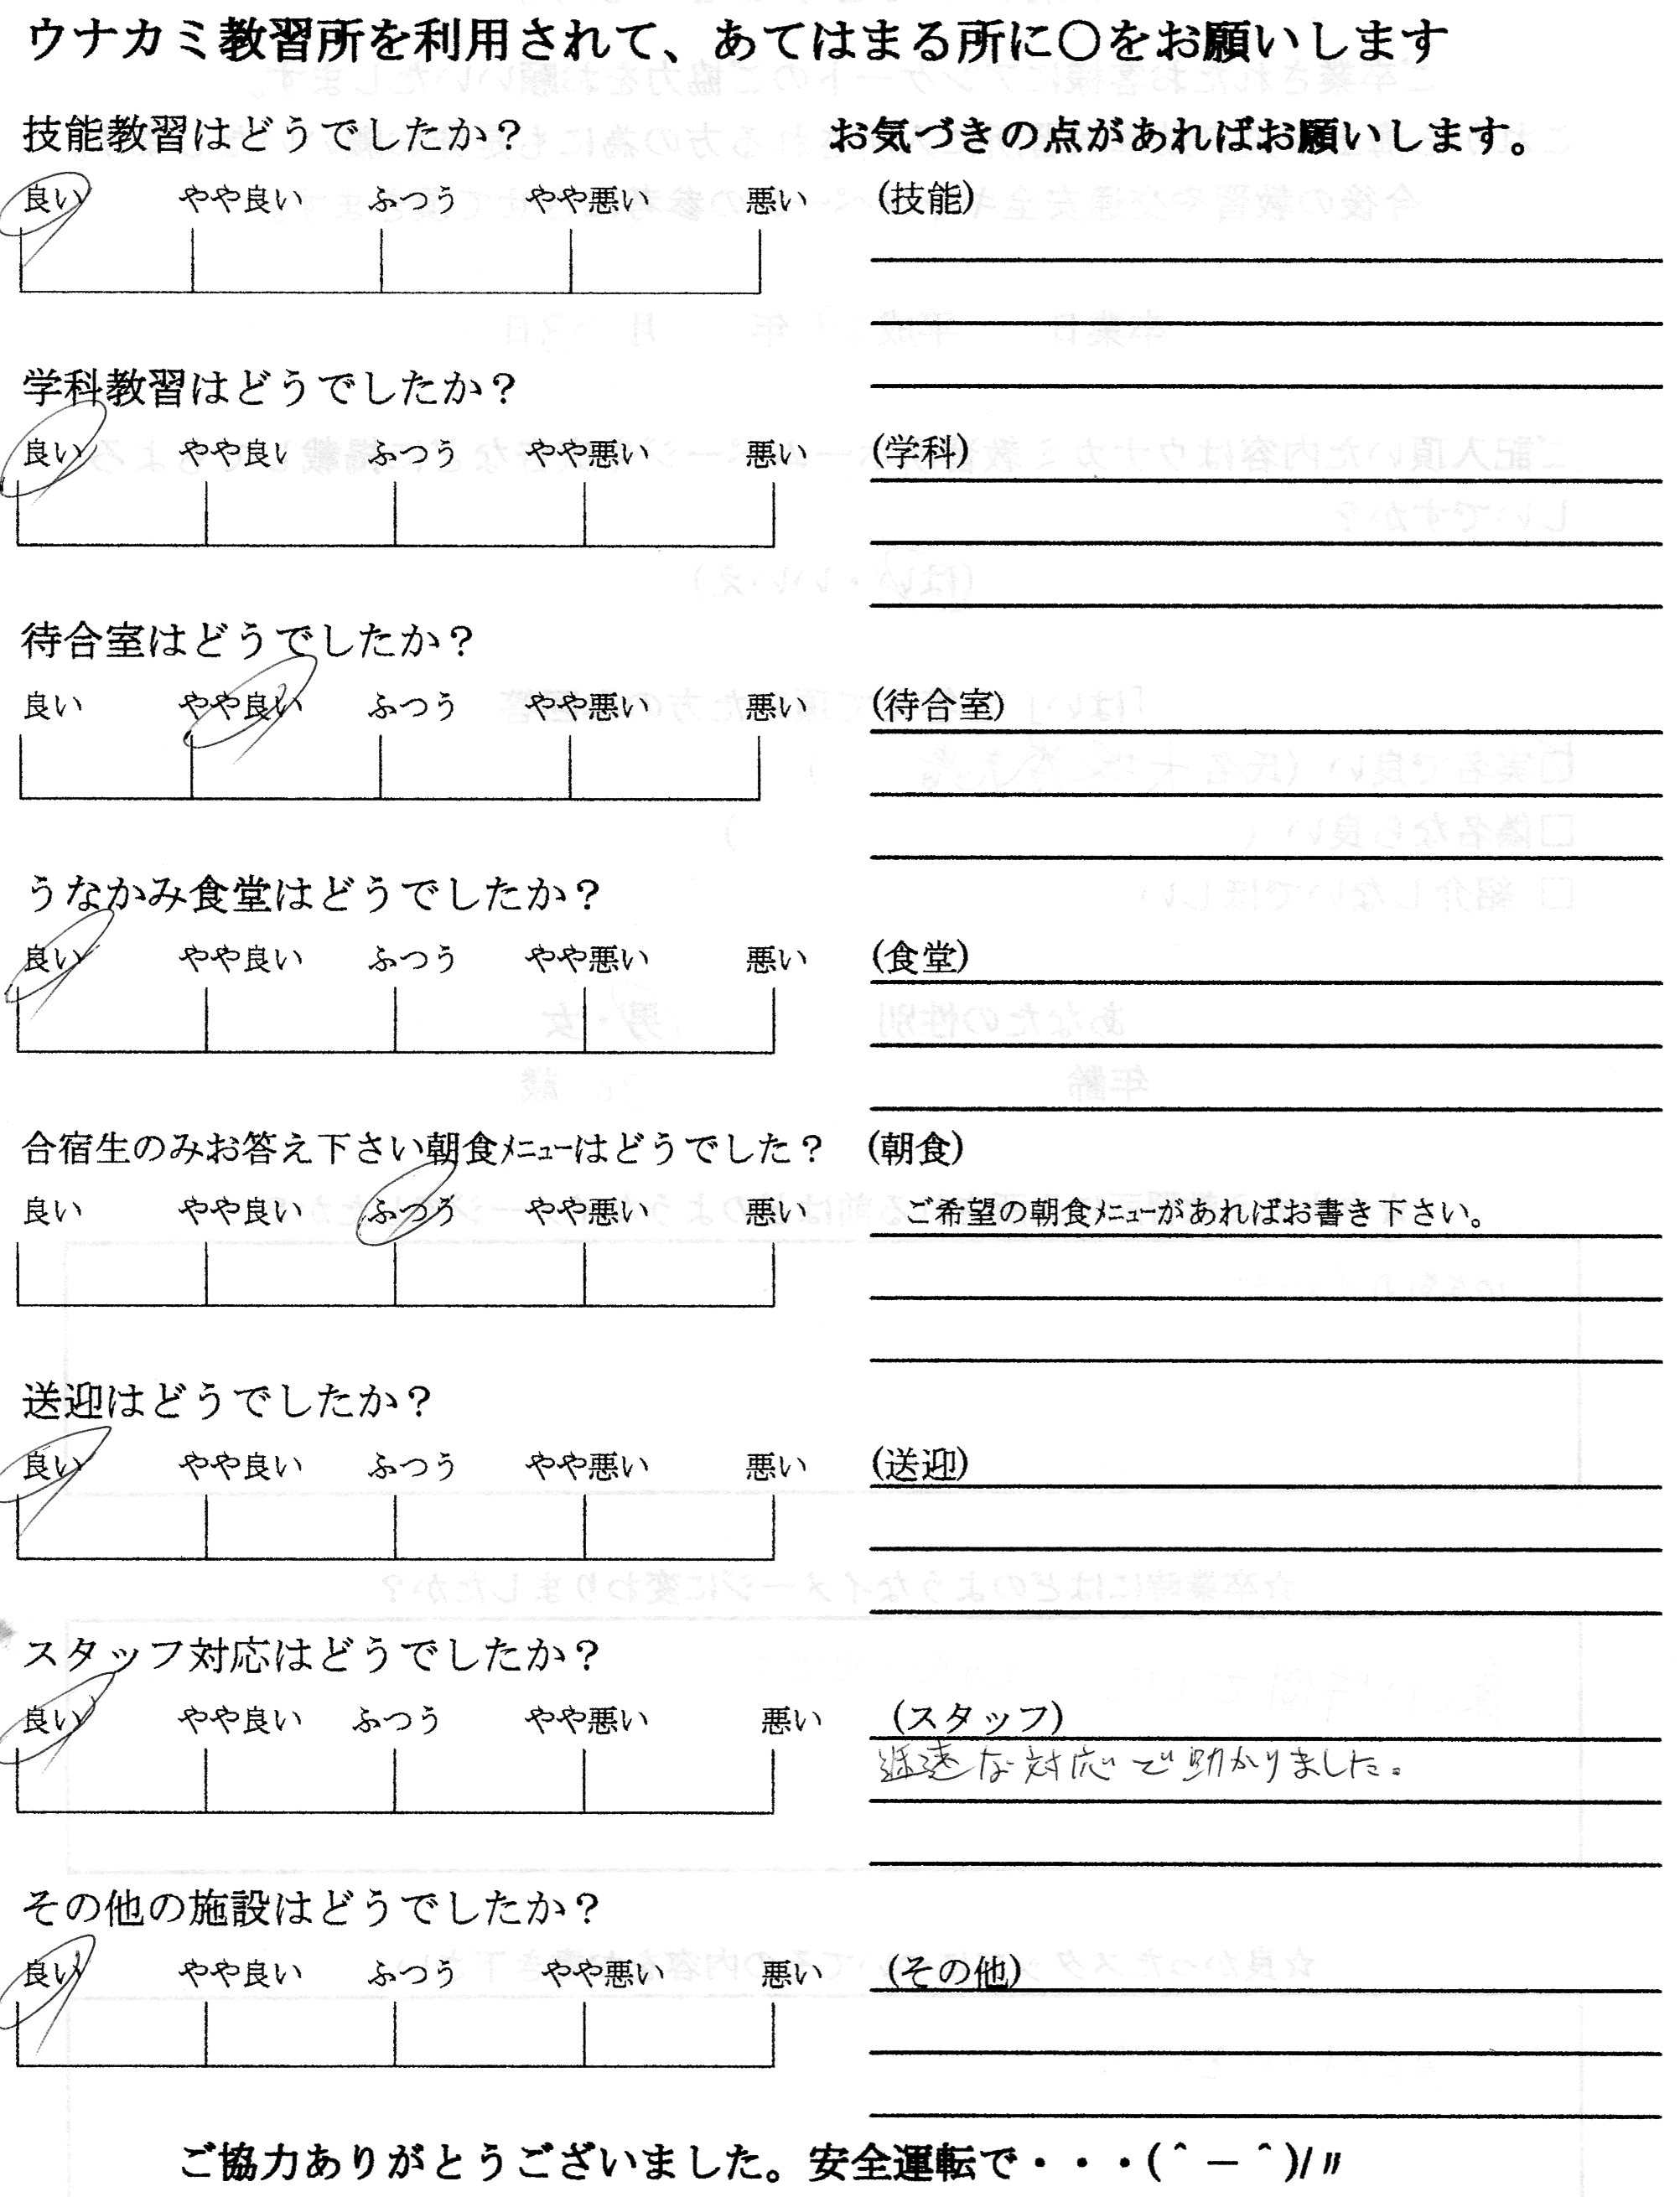 ウナカミ教習所を利用されて、あてはまる所に〇をお願いします
技能教習はどうでしたか？
お気づきの点があればお願いします。
良い やや良い ふつう やや悪い 悪い
(技能)
学科教習はどうでしたか？
良い やや良い ふつう やや悪い 悪い
(学科)
待合室はどうでしたか？
良い やや良い ふつう やや悪い 悪い
(待合室)
うなかみ食堂はどうでしたか？
良い やや良い ふつう やや悪い 悪い
(食堂)
合宿生のみお答え下さい朝食ﾒﾆｭｰはどうでした？
(朝食)
良い やや良い ふつう やや悪い 悪い
ご希望の朝食ﾒﾆｭｰがあればお書き下さい。
送迎はどうでしたか？
良い やや良い ふつう やや悪い 悪い
(送迎)
スタッフ対応はどうでしたか？
良い やや良い ふつう やや悪い 悪い
(スタッフ)
な対応で助かりました。
その他の施設はどうでしたか？
良い やや良い ふつう やや悪い 悪い
(その他)
ご協力ありがとうございました。安全運転で・・・(＾－＾)/〃